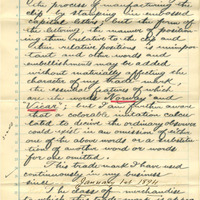 the process of manufacturing the
by stamping in embossed
capital letters; but the form of
the lettering, the manner of position-
ing them relative to the and
their relative positions is unimpor-
tant and other words and
embellishments may be added
without materially affecting the
character of my trade mark
the essential features of which
are the words "and
; but I am further aware
that a colorable imitation calcu-
lated to deceive the ordinary observer
could exist in an omission of either
one of the above words or a substitu-
tion of another word or words
for one omitted.
This trade mark I have used
continuously in my business
since January 1st 1891.
The class of merchandise
to which this trade mark is appro-